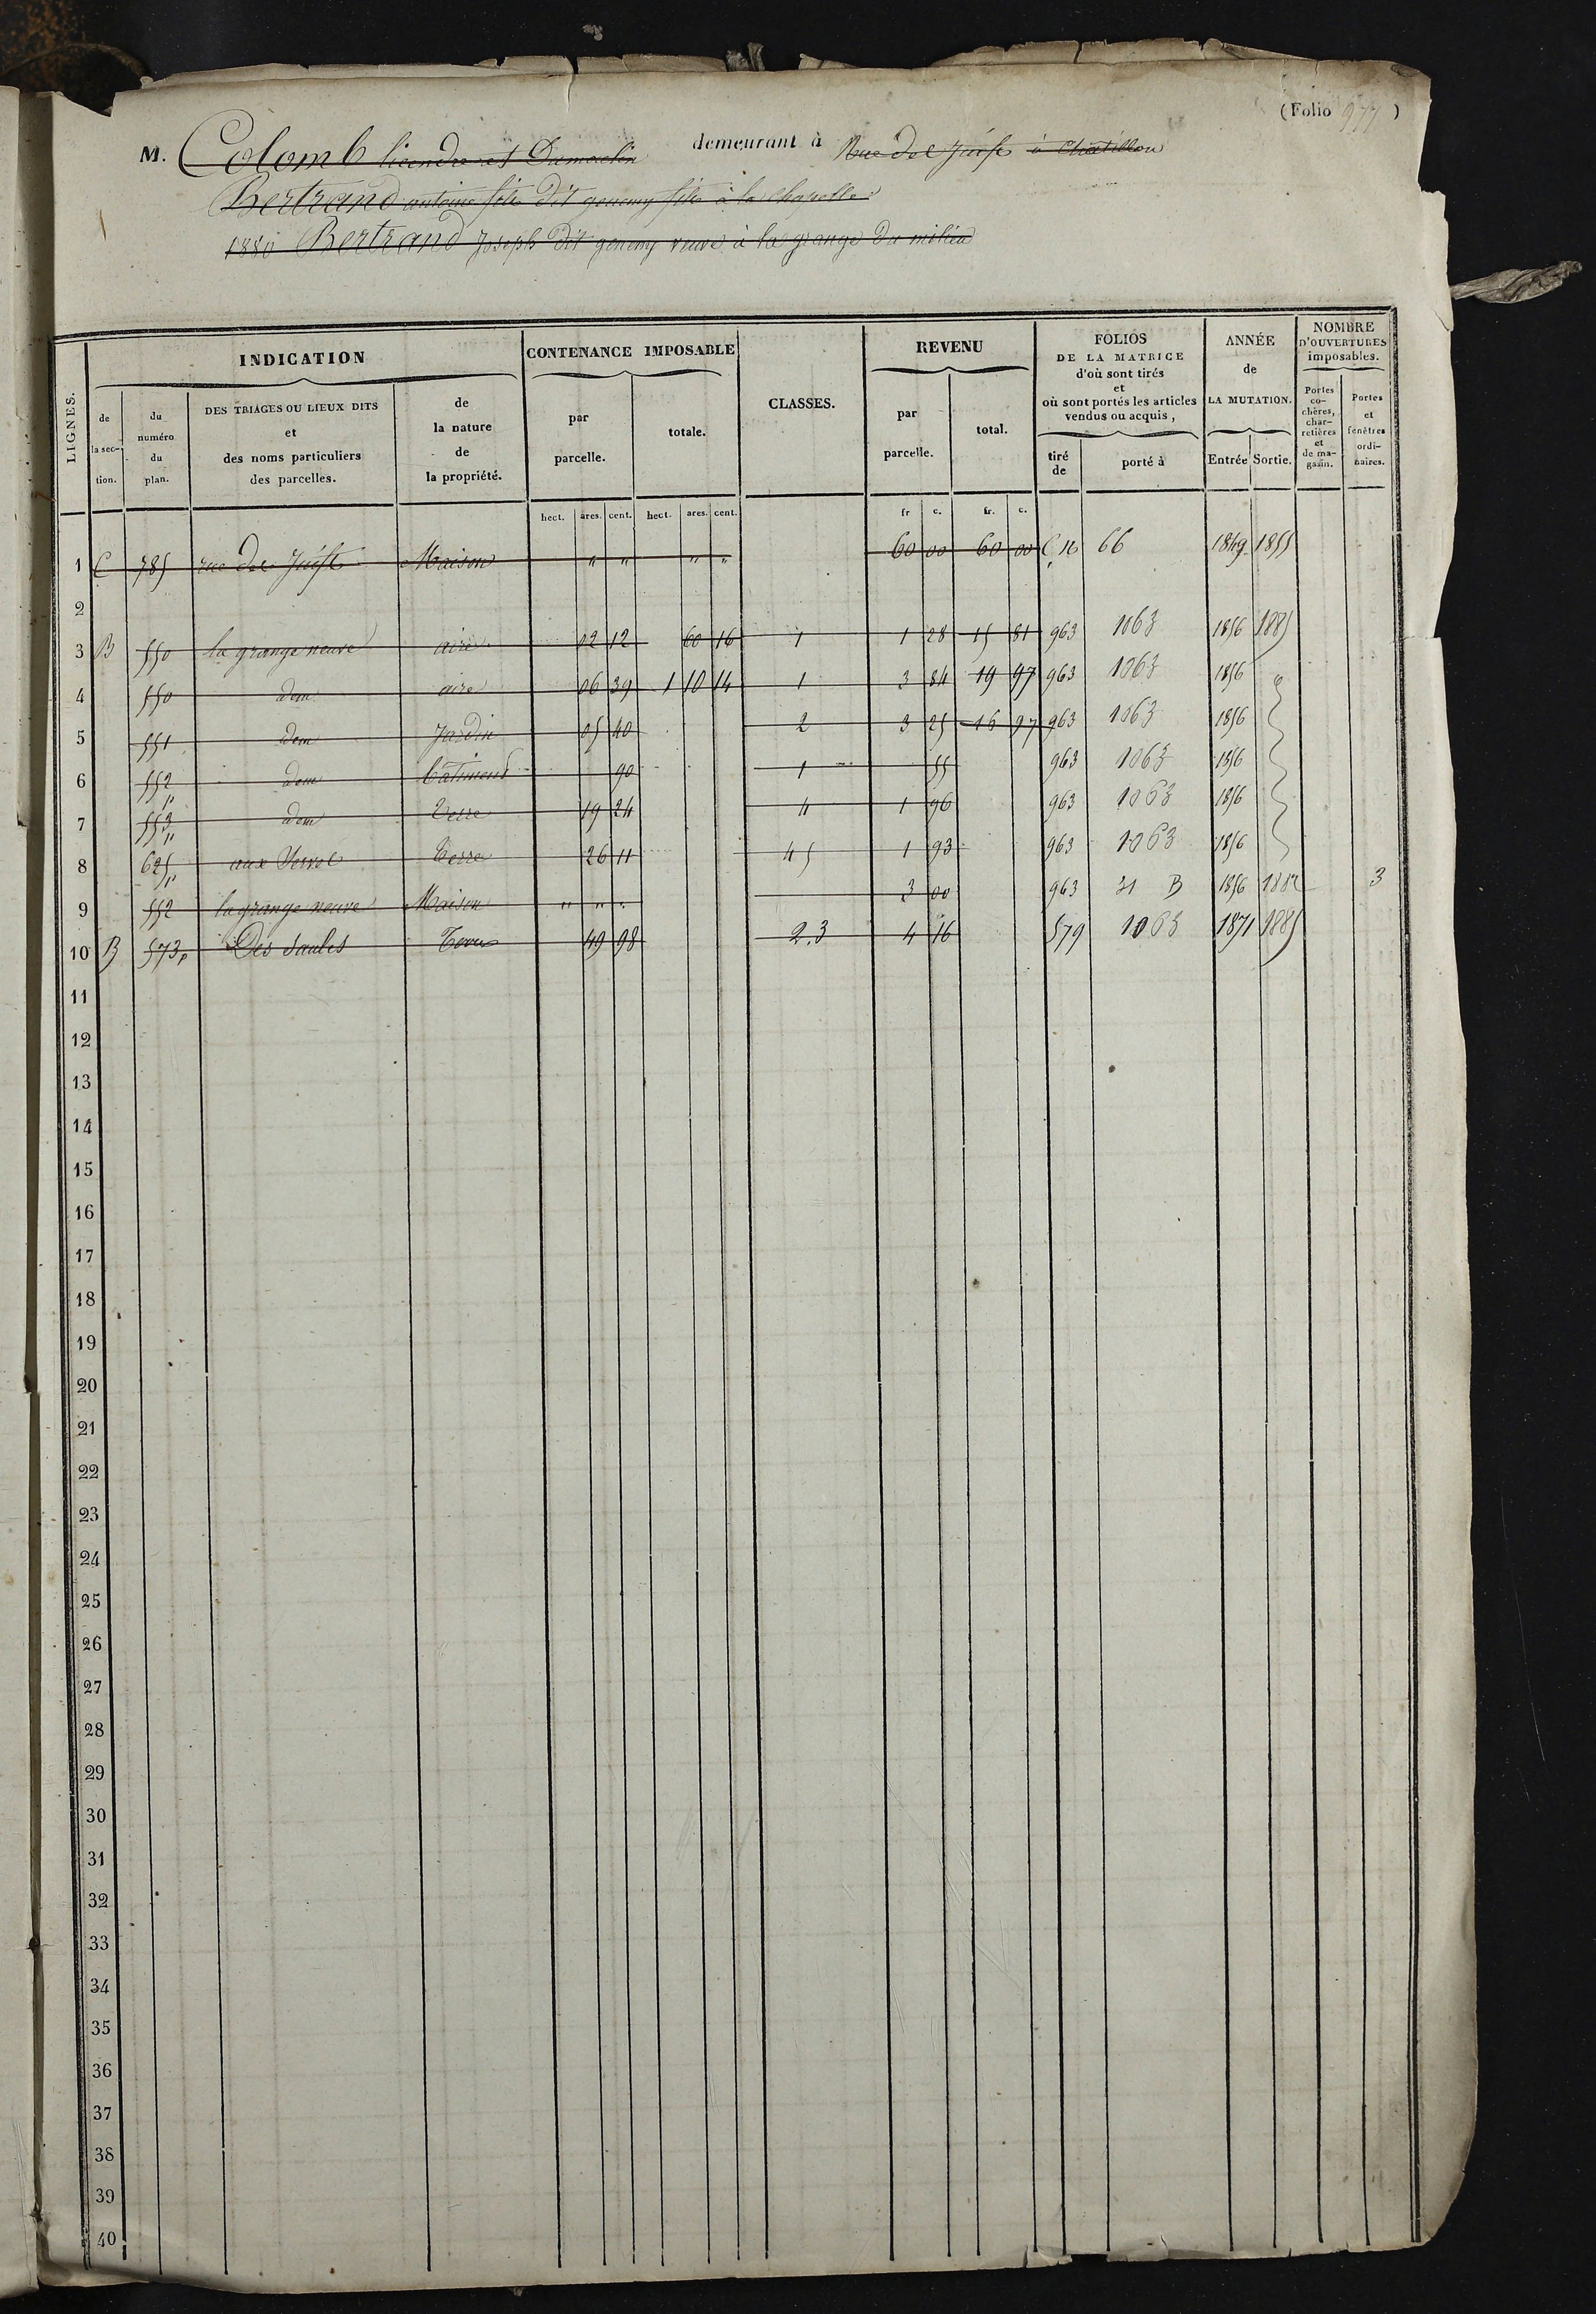 (Folio 977)
M. Colomb demeurant à Rue des Juifs à Chatillon
Bertrand antoine fils dit genemy fils à la chapelle
1880 Bertrand Joseph dit genemy veuve à la grange du milieu
LIGNES.
INDICATION
de la section.
du numéro du plan.
DES TRIAGES OU LIEUX DITS et des noms particuliers des parcelles.
de la nature de la propriété.
CONTENANCE IMPOSABLE
par parcelle.
totale.
CLASSES.
REVENU
par parcelle.
total.
FOLIOS DE LA MATRICE d'où sont tirés et où sont portés les articles vendus ou acquis,
tiré de
porté à
ANNÉE de LA MUTATION.
Entrée Sortie.
NOMBRE D'OUVERTURES imposables.
Portes cochères, charretières et de magasin.
Portes et fenêtres ordinaires.
hect. ares. cent. hect. ares. cent. fr c. fr. c.
1 C 785 rue des Juifs Maison " " " " 60 00 60 00 C N 66 1849 1855
2
3 B 550 la grange neuve aire 02 12 60 16 1 1 28 15 81 963 1063 1856 1885
4 550 dem aire 06 39 1 10 14 1 3 84 19 97 963 1063 1856 "
5 551 dem Jardin 05 40 2 3 25 16 97 963 1063 1856
6 552 dem bâtiment 90 1 55 963 1063 1856
7 553 dem Terre 19 24 4 1 96 963 1063 1856
8 625 aux Terre 26 11 4 5 1 93 963 1063 1856
9 552 la grange neuve Maison " " " 3 00 963 31 B 1856 1882 3
10 B 573p Des Saules Terre 49 98 2.3 4 16 579 1063 1871 1885
11
12
13
14
15
16
17
18
19
20
21
22
23
24
25
26
27
28
29
30
31
32
33
34
35
36
37
38
39
40